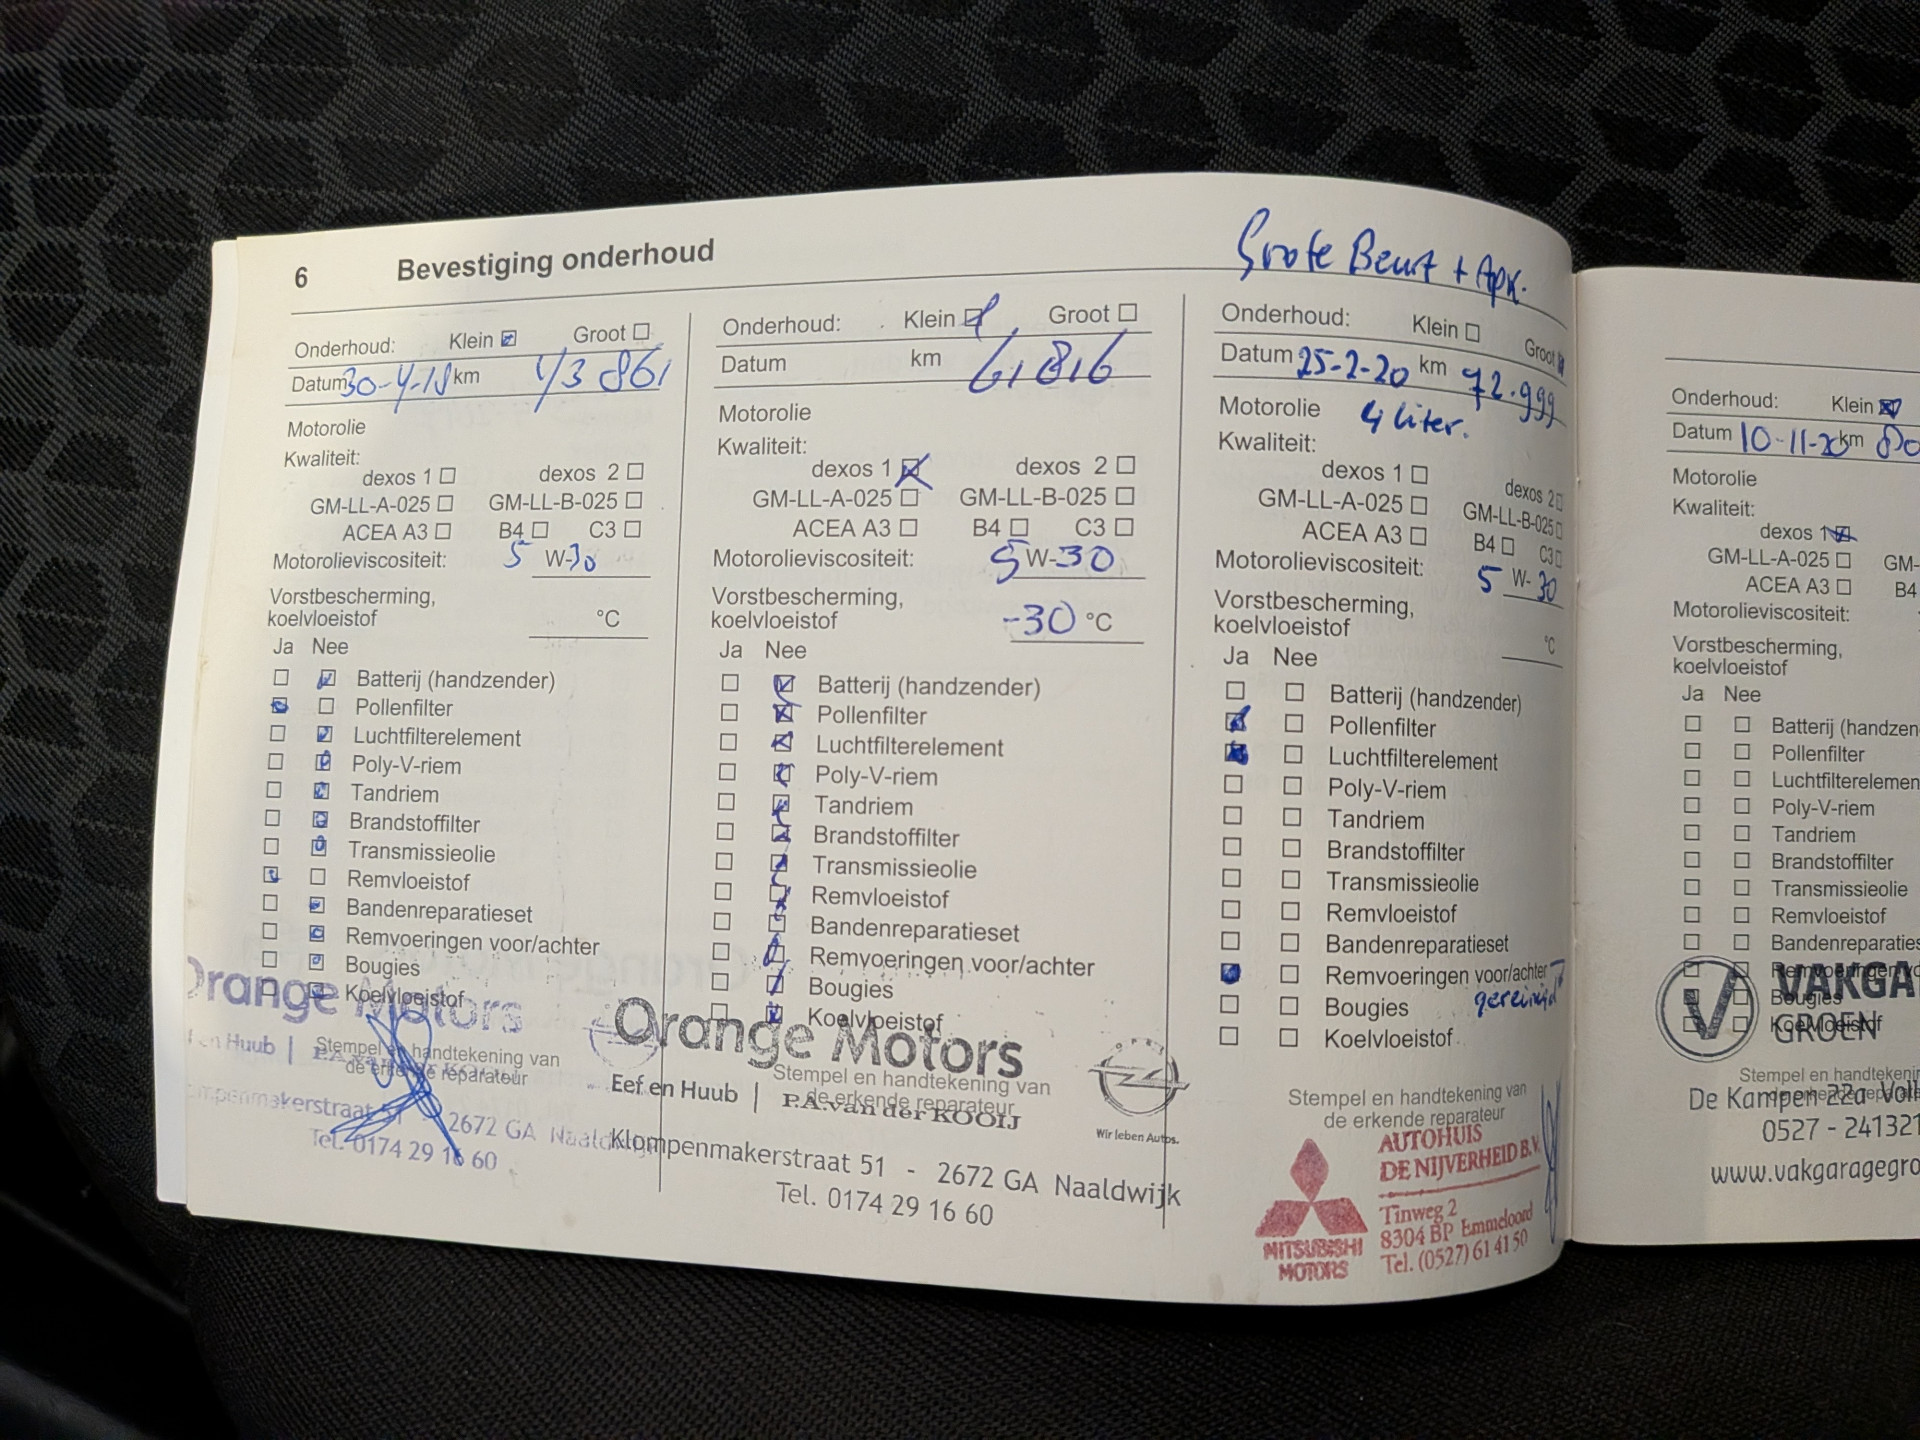 6 Bevestiging onderhoud
Grote Beurt + Apk.
Onderhoud: Klein Groot
Datum 30-4-18 km 43 861
Motorolie
Kwaliteit:
dexos 1 dexos 2
GM-LL-A-025 GM-LL-B-025
ACEA A3 B4 C3
Motorolieviscositeit: 5 W-30
Vorstbescherming,
koelvloeistof °C
Ja Nee
Batterij (handzender)
Pollenfilter
Luchtfilterelement
Poly-V-riem
Tandriem
Brandstoffilter
Transmissieolie
Remvloeistof
Bandenreparatieset
Remvoeringen voor/achter
Bougies
Koelvloeistof
Orange Motors
en Huub |
Stempel en handtekening van
de erkende reparateur
ompenmakerstraat 51 - 2672 GA Naaldwijk
Tel. 0174 29 16 60
Onderhoud: Klein Groot
Datum km 61816
Motorolie
Kwaliteit:
dexos 1 dexos 2
GM-LL-A-025 GM-LL-B-025
ACEA A3 B4 C3
Motorolieviscositeit: 5 W-30
Vorstbescherming,
koelvloeistof -30 °C
Ja Nee
Batterij (handzender)
Pollenfilter
Luchtfilterelement
Poly-V-riem
Tandriem
Brandstoffilter
Transmissieolie
Remvloeistof
Bandenreparatieset
Remvoeringen voor/achter
Bougies
Koelvloeistof
Orange Motors
OPEL
Eef en Huub | P.A. van der KOOIJ
Stempel en handtekening van
de erkende reparateur
Wir leben Autos.
Klompenmakerstraat 51 - 2672 GA Naaldwijk
Tel. 0174 29 16 60
Onderhoud: Klein Groot
Datum 25-2-20 km 72.999
Motorolie 4 liter.
Kwaliteit:
dexos 1 dexos 2
GM-LL-A-025 GM-LL-B-025
ACEA A3 B4 C3
Motorolieviscositeit: 5 W-30
Vorstbescherming,
koelvloeistof °C
Ja Nee
Batterij (handzender)
Pollenfilter
Luchtfilterelement
Poly-V-riem
Tandriem
Brandstoffilter
Transmissieolie
Remvloeistof
Bandenreparatieset
Remvoeringen voor/achter
gereinigd
Bougies
Koelvloeistof
Stempel en handtekening van
de erkende reparateur
AUTOHUIS
DE NIJVERHEID B.V.
Tinweg 2
8304 BP Emmeloord
Tel. (0527) 61 41 50
MITSUBISHI
MOTORS
Onderhoud: Klein
Datum 10-11-20 km 80
Motorolie
Kwaliteit:
dexos 1
GM-LL-A-025 GM-
ACEA A3 B4
Motorolieviscositeit:
Vorstbescherming,
koelvloeistof
Ja Nee
Batterij (handzen
Pollenfilter
Luchtfilterelemen
Poly-V-riem
Tandriem
Brandstoffilter
Transmissieolie
Remvloeistof
Bandenreparaties
Remvoeringen vo
Bougies
Koelvloeistof
VAKGA
GROEN
Stempel en handtekenin
de erkende reparate
De Kampen 22a Voll
0527 - 241321
www.vakgaragegro